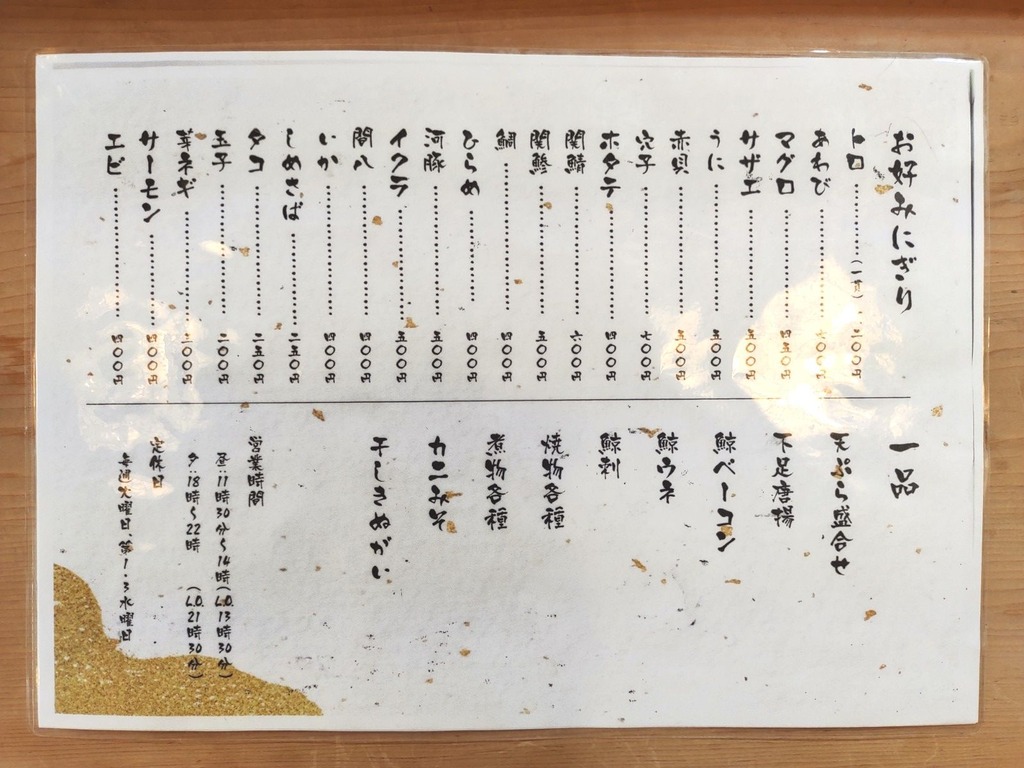 お好みにぎり
トロ (一貫) 二〇〇円
あわび 六〇〇円
マグロ 四五〇円
サザエ 五〇〇円
うに 五〇〇円
赤貝 五〇〇円
穴子 七〇〇円
ホタテ 四〇〇円
関鯖 六〇〇円
関鯵 五〇〇円
鯛 四〇〇円
ひらめ 四〇〇円
河豚 五〇〇円
イクラ 五〇〇円
間八 四〇〇円
いか 四〇〇円
しめさば 二五〇円
タコ 二五〇円
玉子 二〇〇円
芽ネギ 三〇〇円
サーモン 四〇〇円
エビ 四〇〇円
一品
天ぷら盛合せ
下足唐揚
鯨ベーコン
鯨ウネ
鯨刺
焼物各種
煮物各種
カニみそ
干しきぬがい
営業時間
昼:11時30分〜14時(L.O.13時30分)
夕:18時〜22時 (L.O.21時30分)
定休日
毎週火曜日、第1・3水曜日